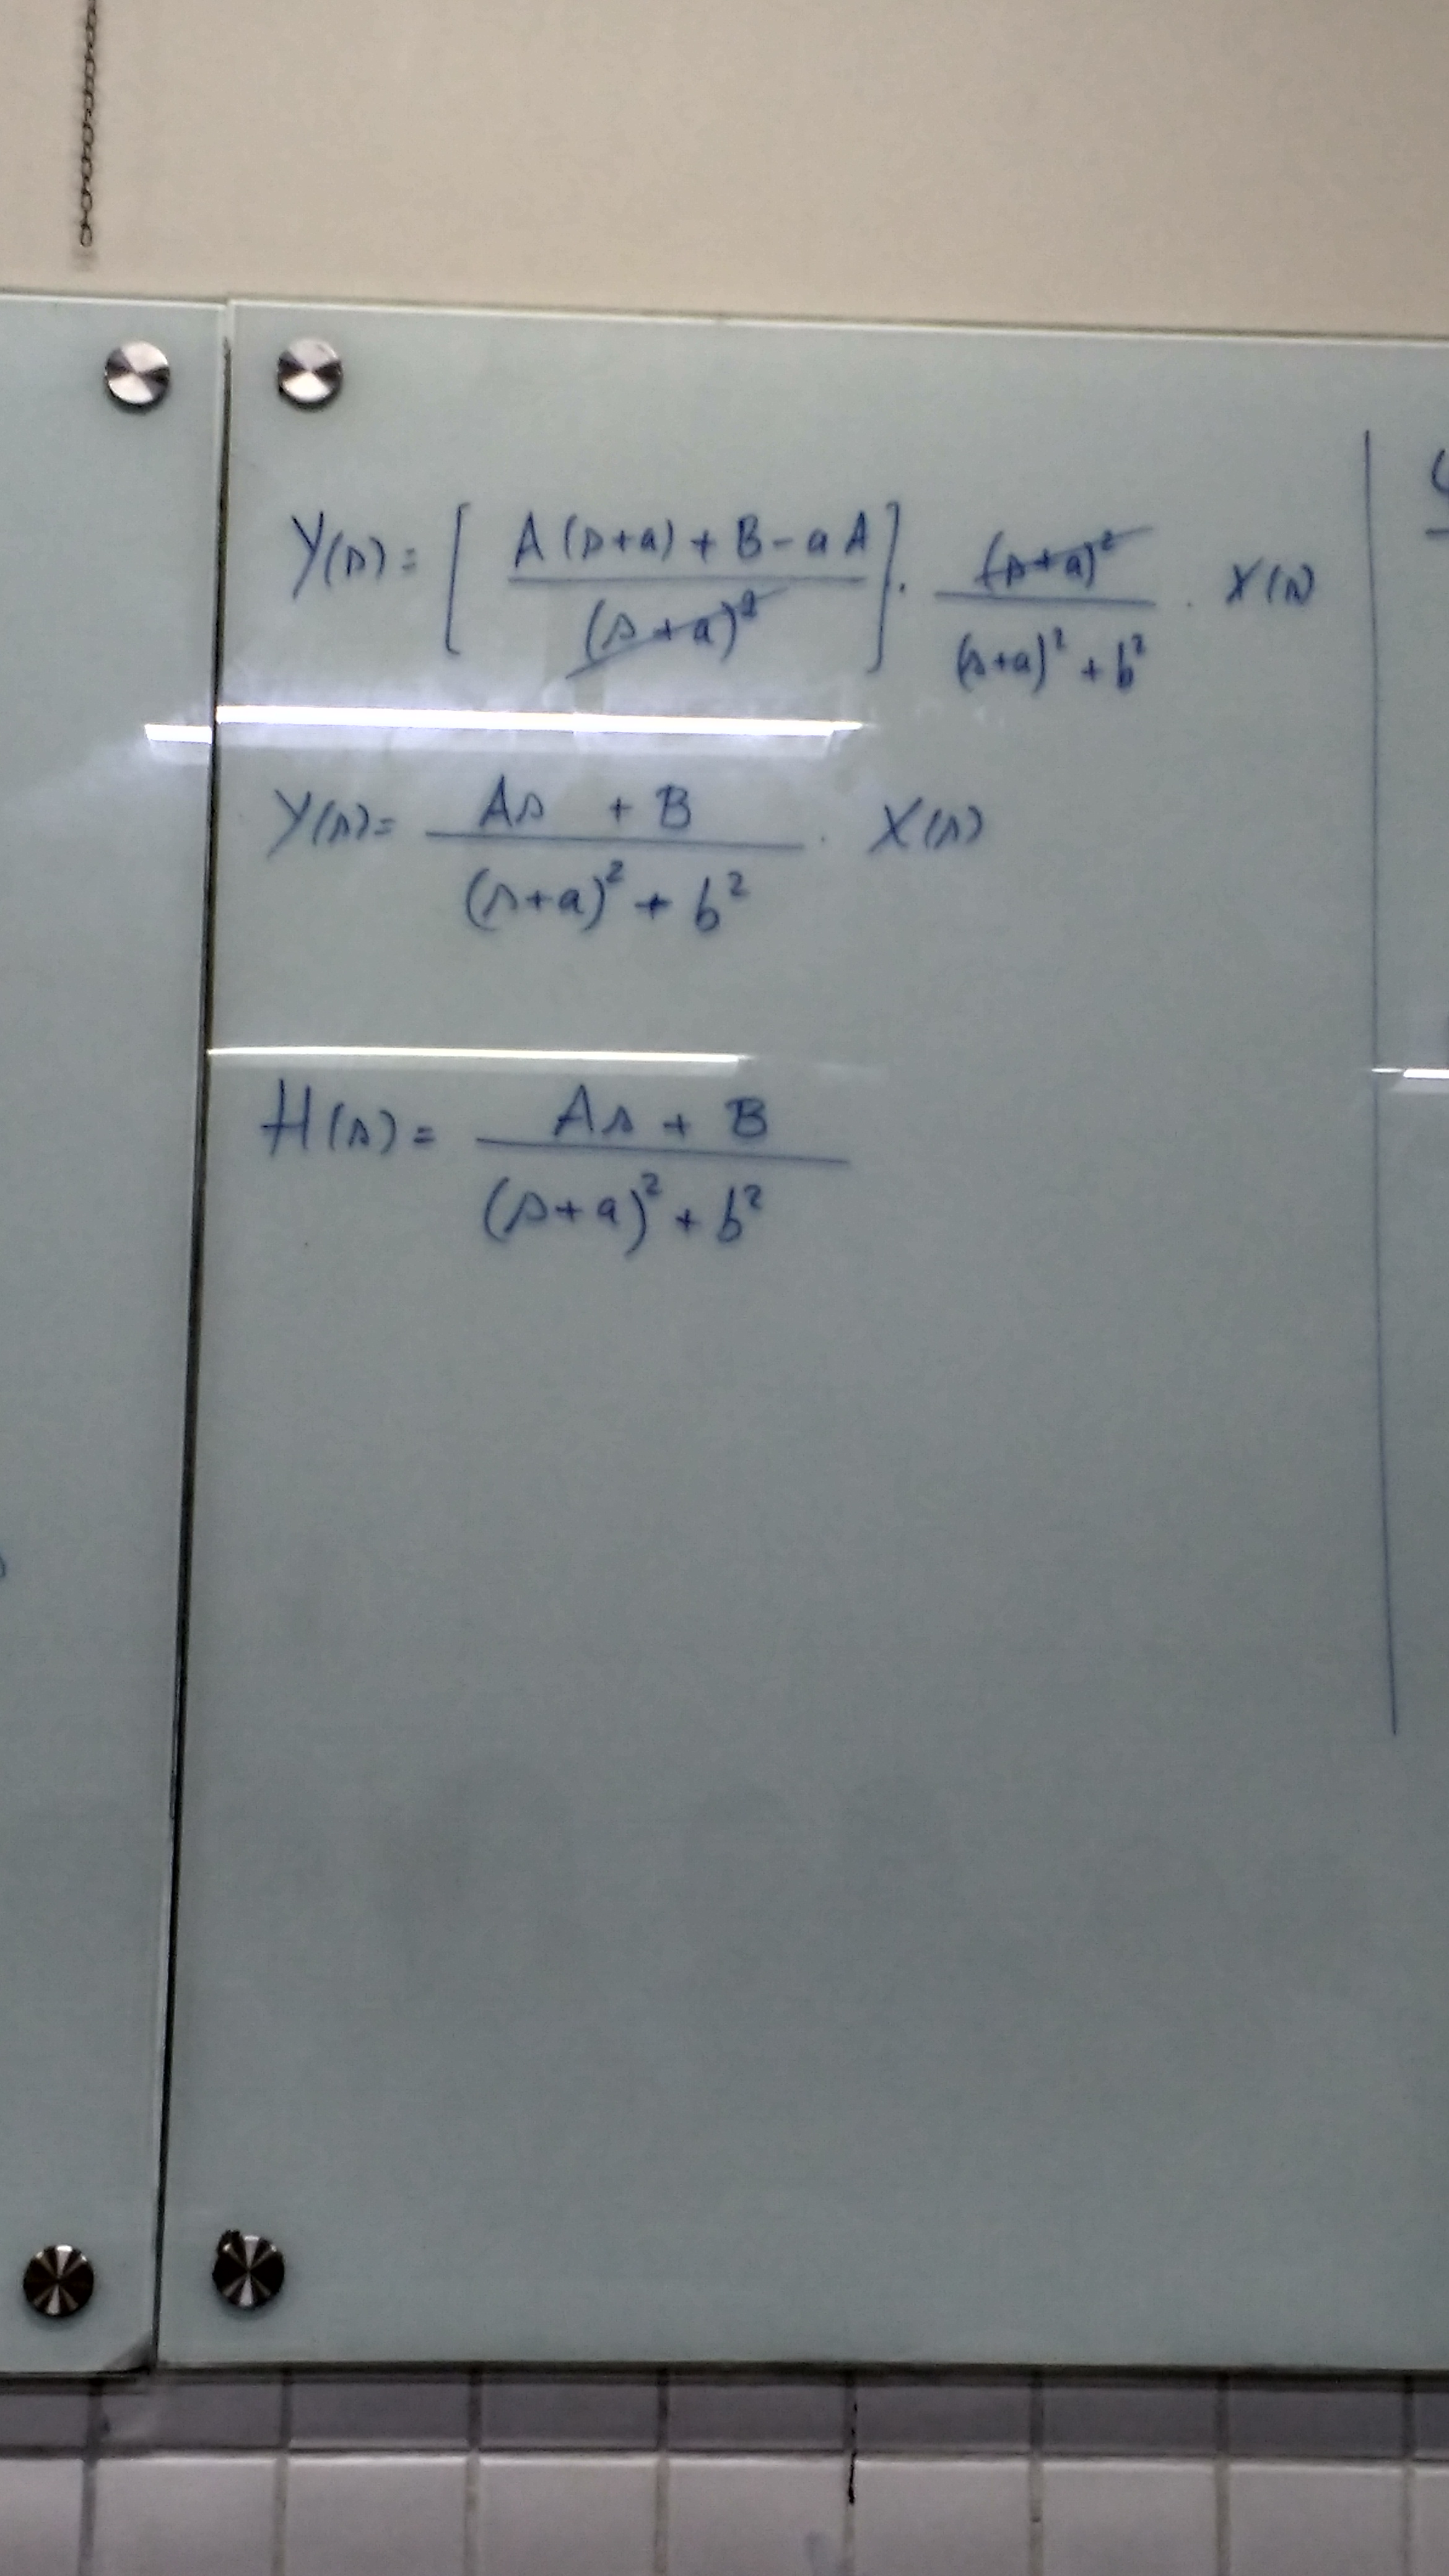 Y(s) = [ A(s+a) + B - aA / (s+a)² ] . (s+a)² / (s+a)² + b² . X(s)
Y(s) = As + B / (s+a)² + b² . X(s)
H(s) = As + B / (s+a)² + b²